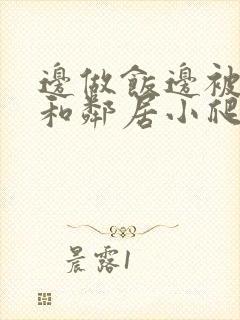 邊做飯邊被
和鄰居小爬
晨露1